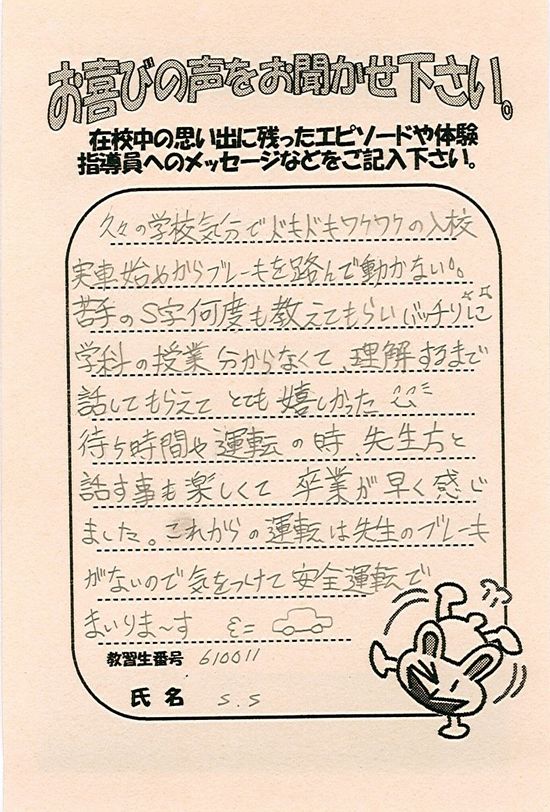 お喜びの声をお聞かせ下さい。
在校中の思い出に残ったエピソードや体験
指導員へのメッセージなどをご記入下さい。
久々の学校気分でドキドキワクワクの入校
実車始めからブレーキを踏んで動かない。
苦手のS字何度も教えてもらいバッチリに
学科の授業分からなくて、理解するまで
話してもらえて とても嬉しかった
待ち時間や運転の時、先生方と
話す事も楽しくて 卒業が早く感じ
ました。これからの運転は先生のブレーキ
がないので気をつけて安全運転で
まいりま〜す
教習生番号 610011
氏名 S.S